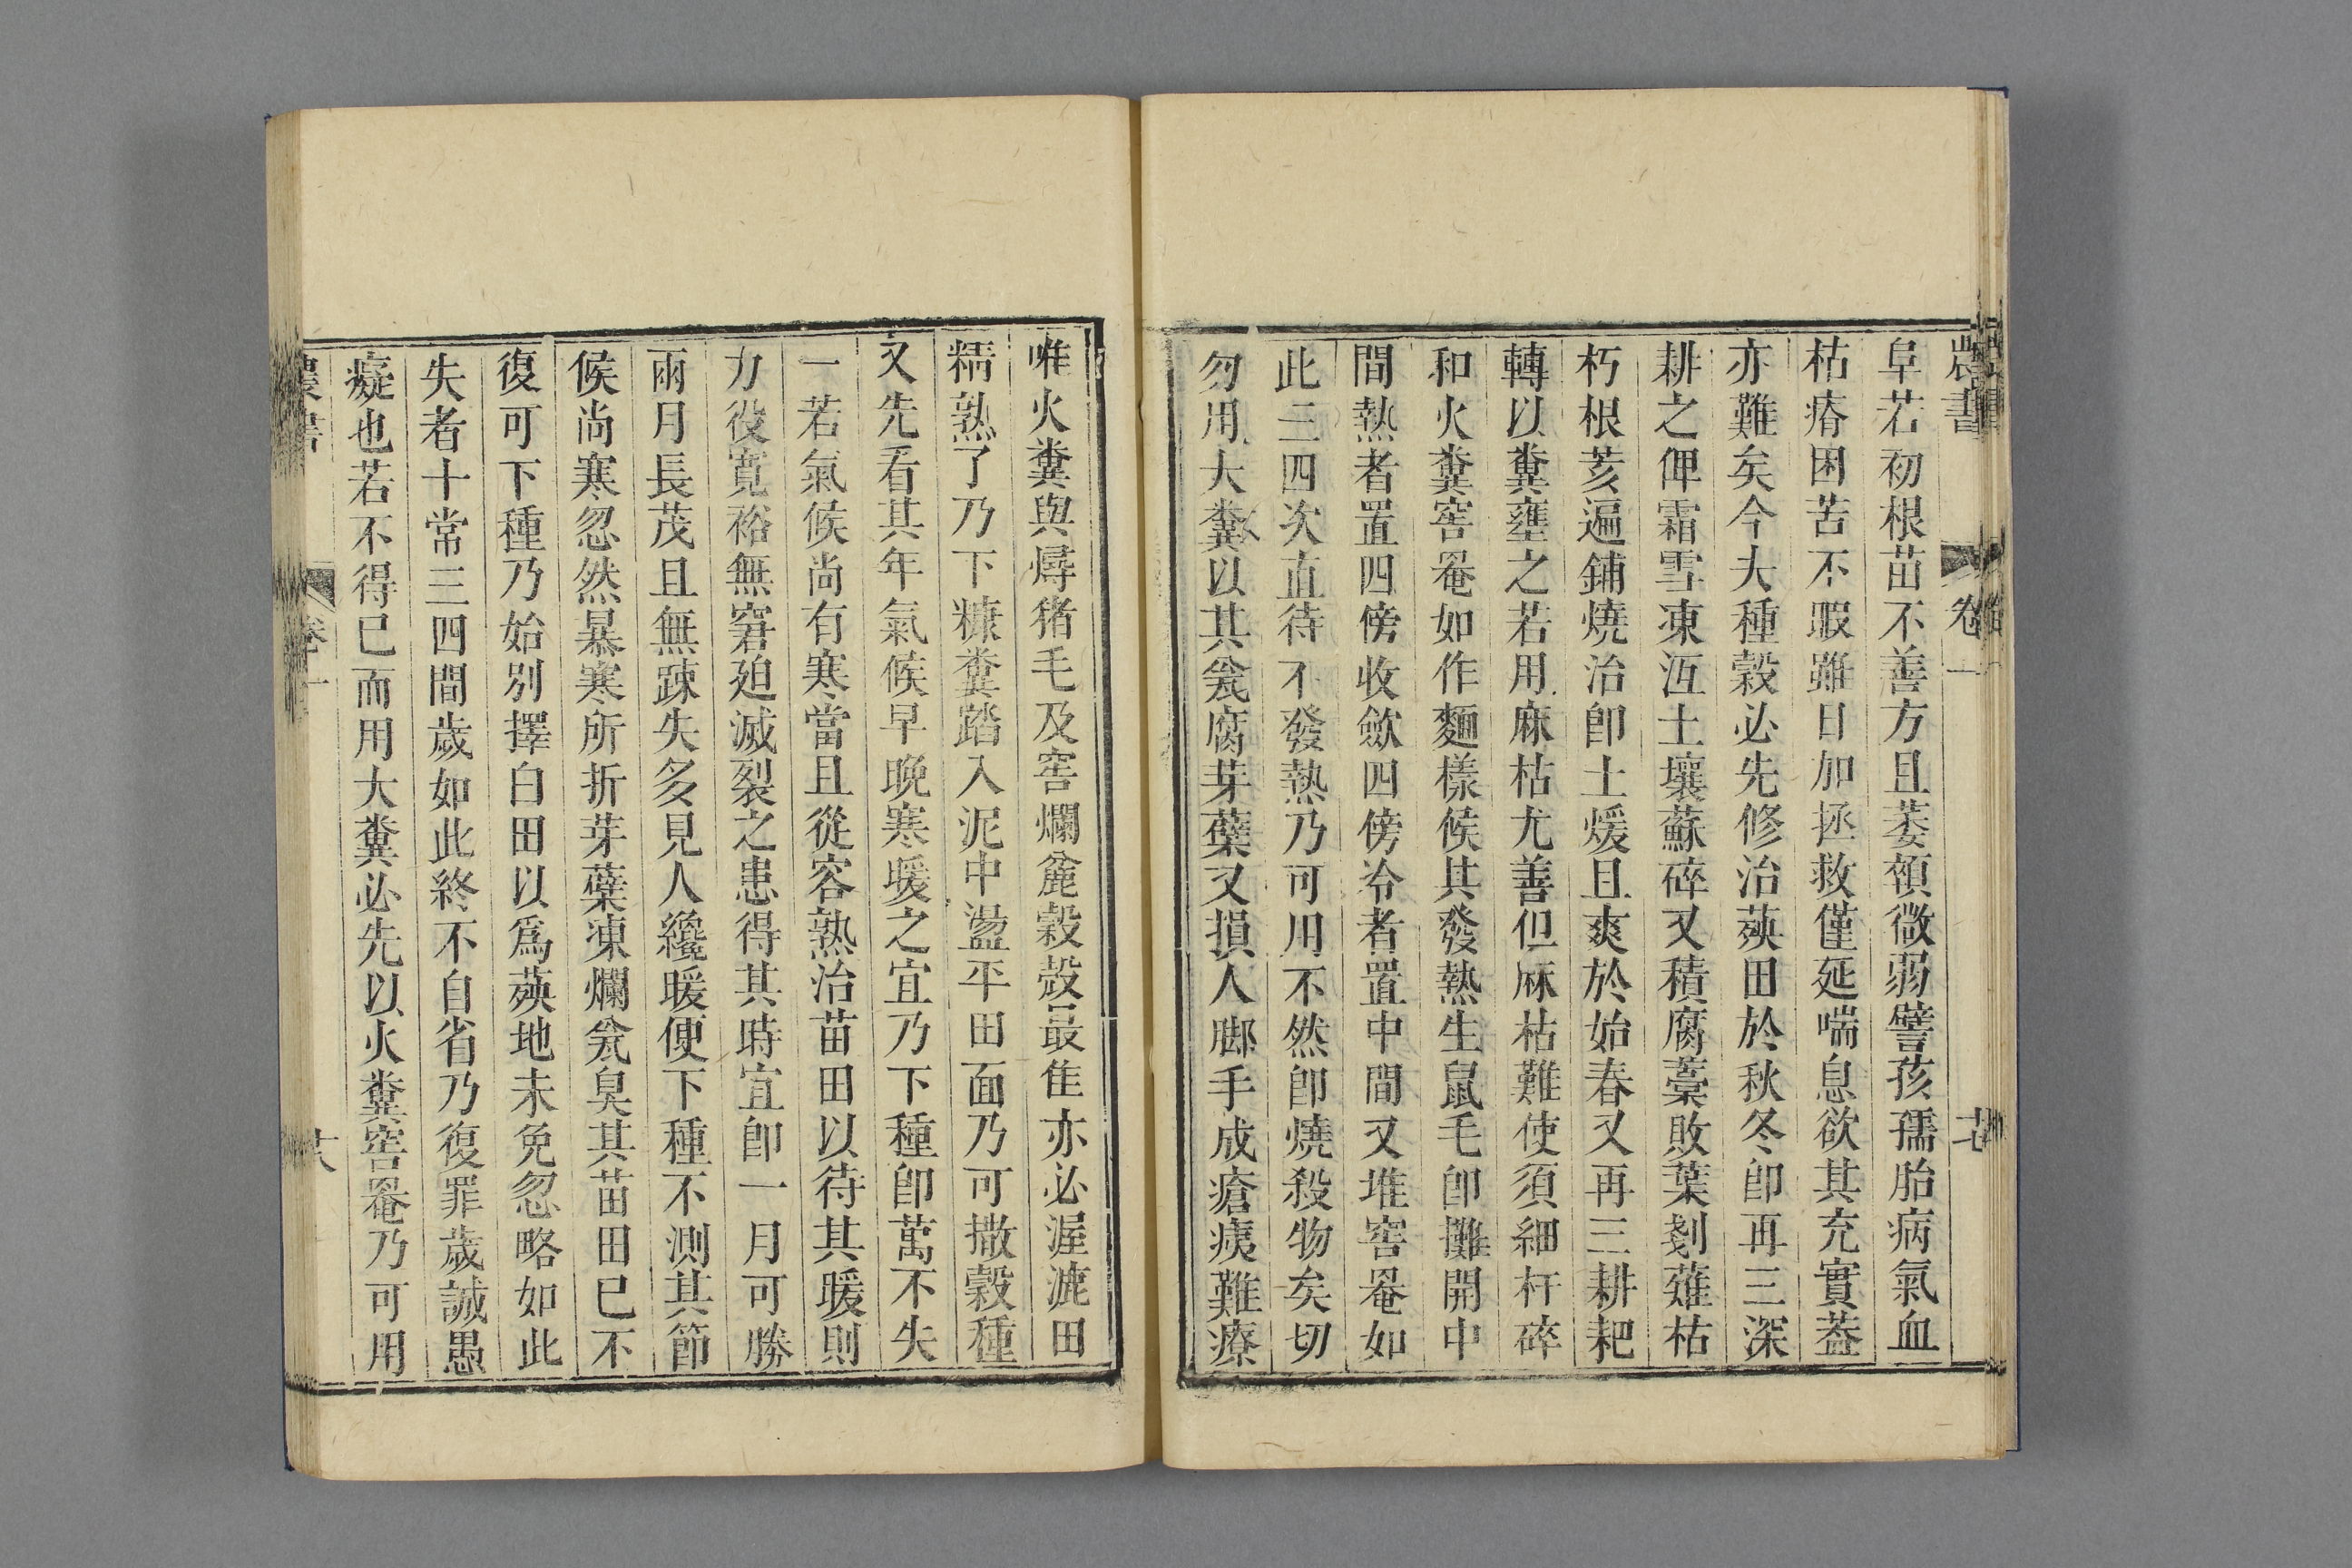 農書 卷一 十七
阜若初根苗不善方且萎顇微弱譬孩孺胎病氣血
枯瘠困苦不暇雖日加拯救僅延喘息欲其充實葢
亦難矣今夫種穀必先修治蓺田於秋冬卽再三深
耕之俾霜雪凍沍土壤蘇碎又積腐藁敗葉剗薙枯
朽根荄遍鋪燒治卽土煖且爽於始春又再三耕耙
轉以糞壅之若用麻枯尤善但麻枯難使須細杵碎
和火糞窖罨如作麵樣候其發熱生鼠毛卽攤開中
間熱者置四傍收歛四傍冷者置中間又堆窖罨如
此三四次直待不發熱乃可用不然卽燒殺物矣切
勿用大糞以其瓮腐芽蘖又損人脚手成瘡痍難療
唯火糞與燖猪毛及窖爛麄穀殼最隹亦必渥漉田
精熟了乃下糠糞踏入泥中盪平田面乃可撒穀種
又先看其年氣候早晚寒暖之宜乃下種卽萬不失
一若氣候尚有寒當且從容熟治苗田以待其暖則
力役寛裕無窘廹滅裂之患得其時宜卽一月可勝
兩月長茂且無疎失多見人纔暖便下種不測其節
候尚寒忽然暴寒所折芽蘖凍爛瓮臭其苗田已不
復可下種乃始別擇白田以爲蓺地未免忽略如此
失者十常三四間歲如此終不自省乃復罪歲誠愚
癡也若不得已而用大糞必先以火糞窖罨乃可用
農書 卷一 十八